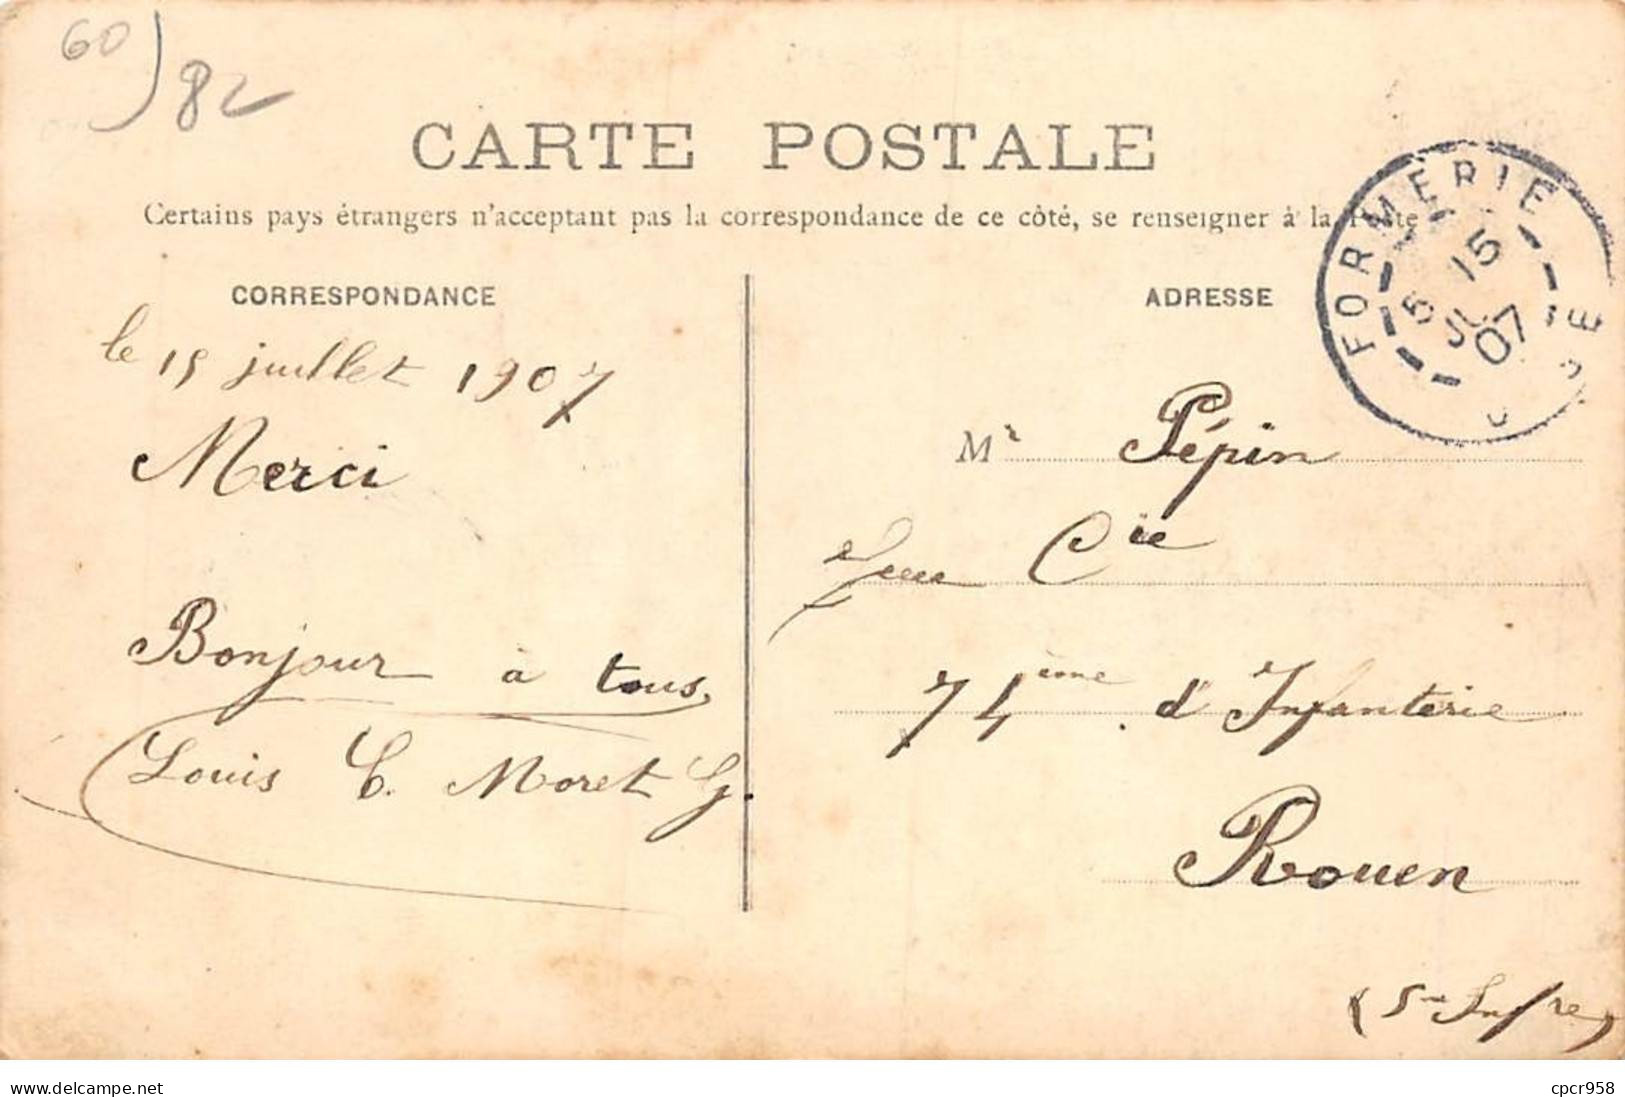 60
82
CARTE POSTALE
Certains pays étrangers n'acceptant pas la correspondance de ce côté, se renseigner à la Poste
FORMERIE
5 15
JUL
07
OISE
CORRESPONDANCE
le 15 juillet 1907
Merci
Bonjour à tous,
Louis C. Moret G.
ADRESSE
Mr Pépin
Cie
74ème d'Infanterie
Rouen
(Sne Infre)
www.delcampe.net
cpcr958